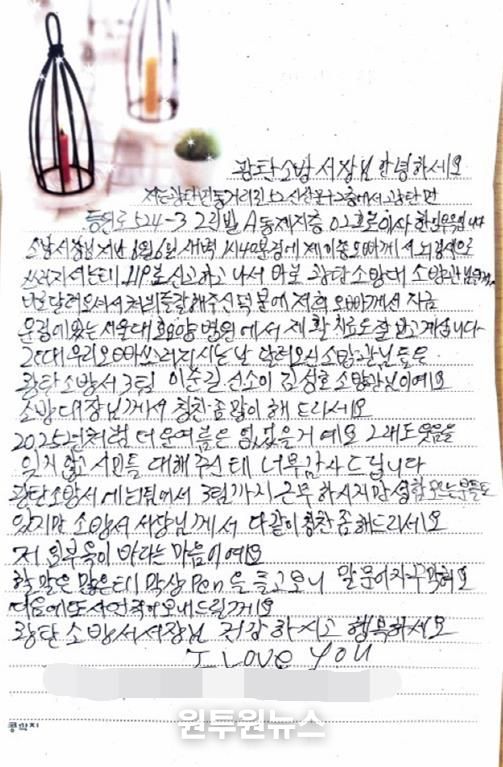 광탄소방서장님 안녕하세요
저는 광탄면 동거리 2층에서 광탄면
등원로 524-3 2리빌 A동 제지층 02호로 이사 한
소방서장님 지난 8월 6일 새벽 1시 40분경에 제 오빠께서 뇌경색으로
쓰러지셨는데 119로 신고하고 나서 바로 광탄소방대 소방관님
달려오셔서 처치를 잘해주신 덕분에 저희 오빠께선 지금
운정에 있는 서울대효요양병원에서 재활치료도 잘 받고 계십니다
그런데 우리 오빠 쓰러지시는 날 달려오신 소방관님들은
광탄소방서 3팀 이준길 선소이 김성호 소방관님이예요
소방대장님께서 칭찬 좀 많이 해 드리세요
2025년처럼 더운 여름은 없었을거예요 그래도 웃음을
잊지 않고 시민들 대해주신데 너무 감사드립니다
광탄소방서에 1팀에서 3팀까지 근무하시지만
있지만 소방서 서장님께서 다같이 칭찬 좀 해드리세요
저 외부육이 바라는 마음이예요
할 말은 많은데 막상 Pen을 들고보니 말문이
다음에 또 사연 적어 보내드릴게요
광탄소방서 서장님 건강하시고 행복하세요
I LOVE YOU
원투원뉴스